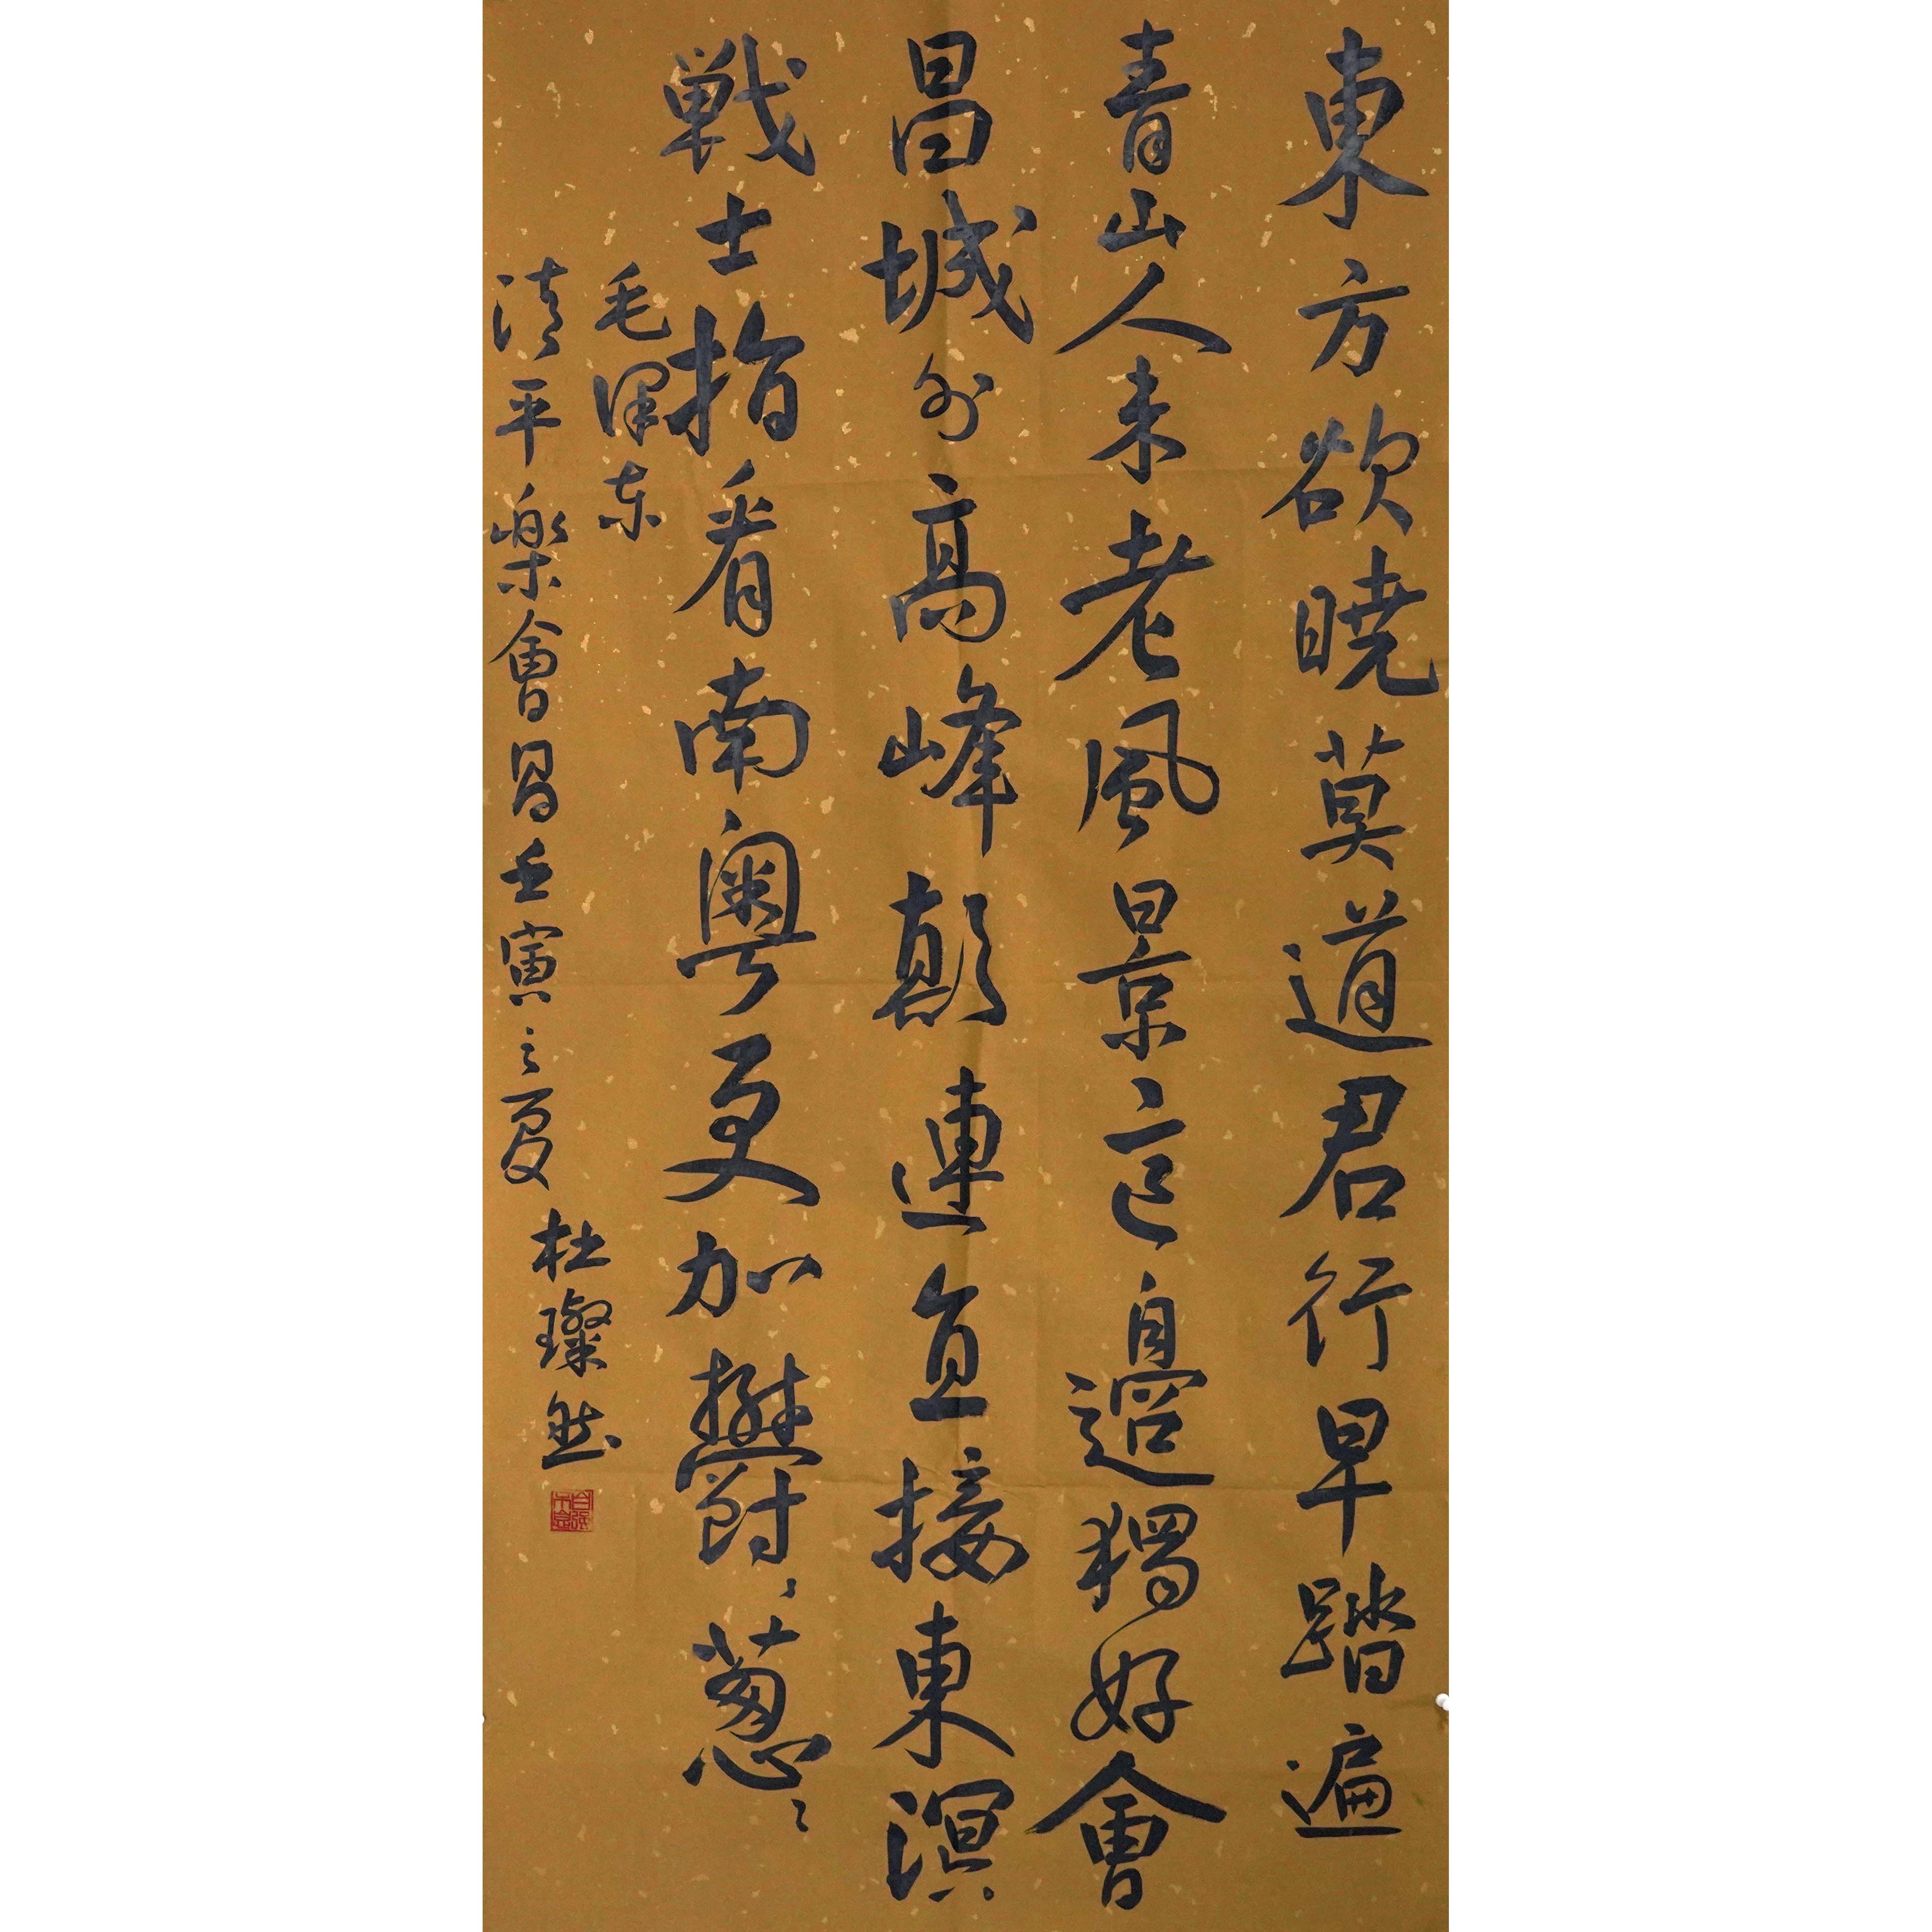 東方欲暁莫道君行早踏遍
青山人未老風景這邊獨好會
昌城外高峰顛連直接東溟
戦士指看南粤更加鬱〻葱〻
毛泽东
清平樂會昌壬寅之夏
杜璨然
自强不息